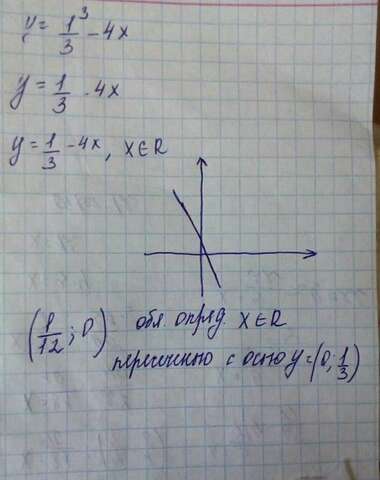 y = 1³/3 - 4x
y = 1/3 - 4x
y = 1/3 - 4x, x ∈ R
(1/12; 0) обл. опред. x ∈ R
пересечению с осью y = (0; 1/3)